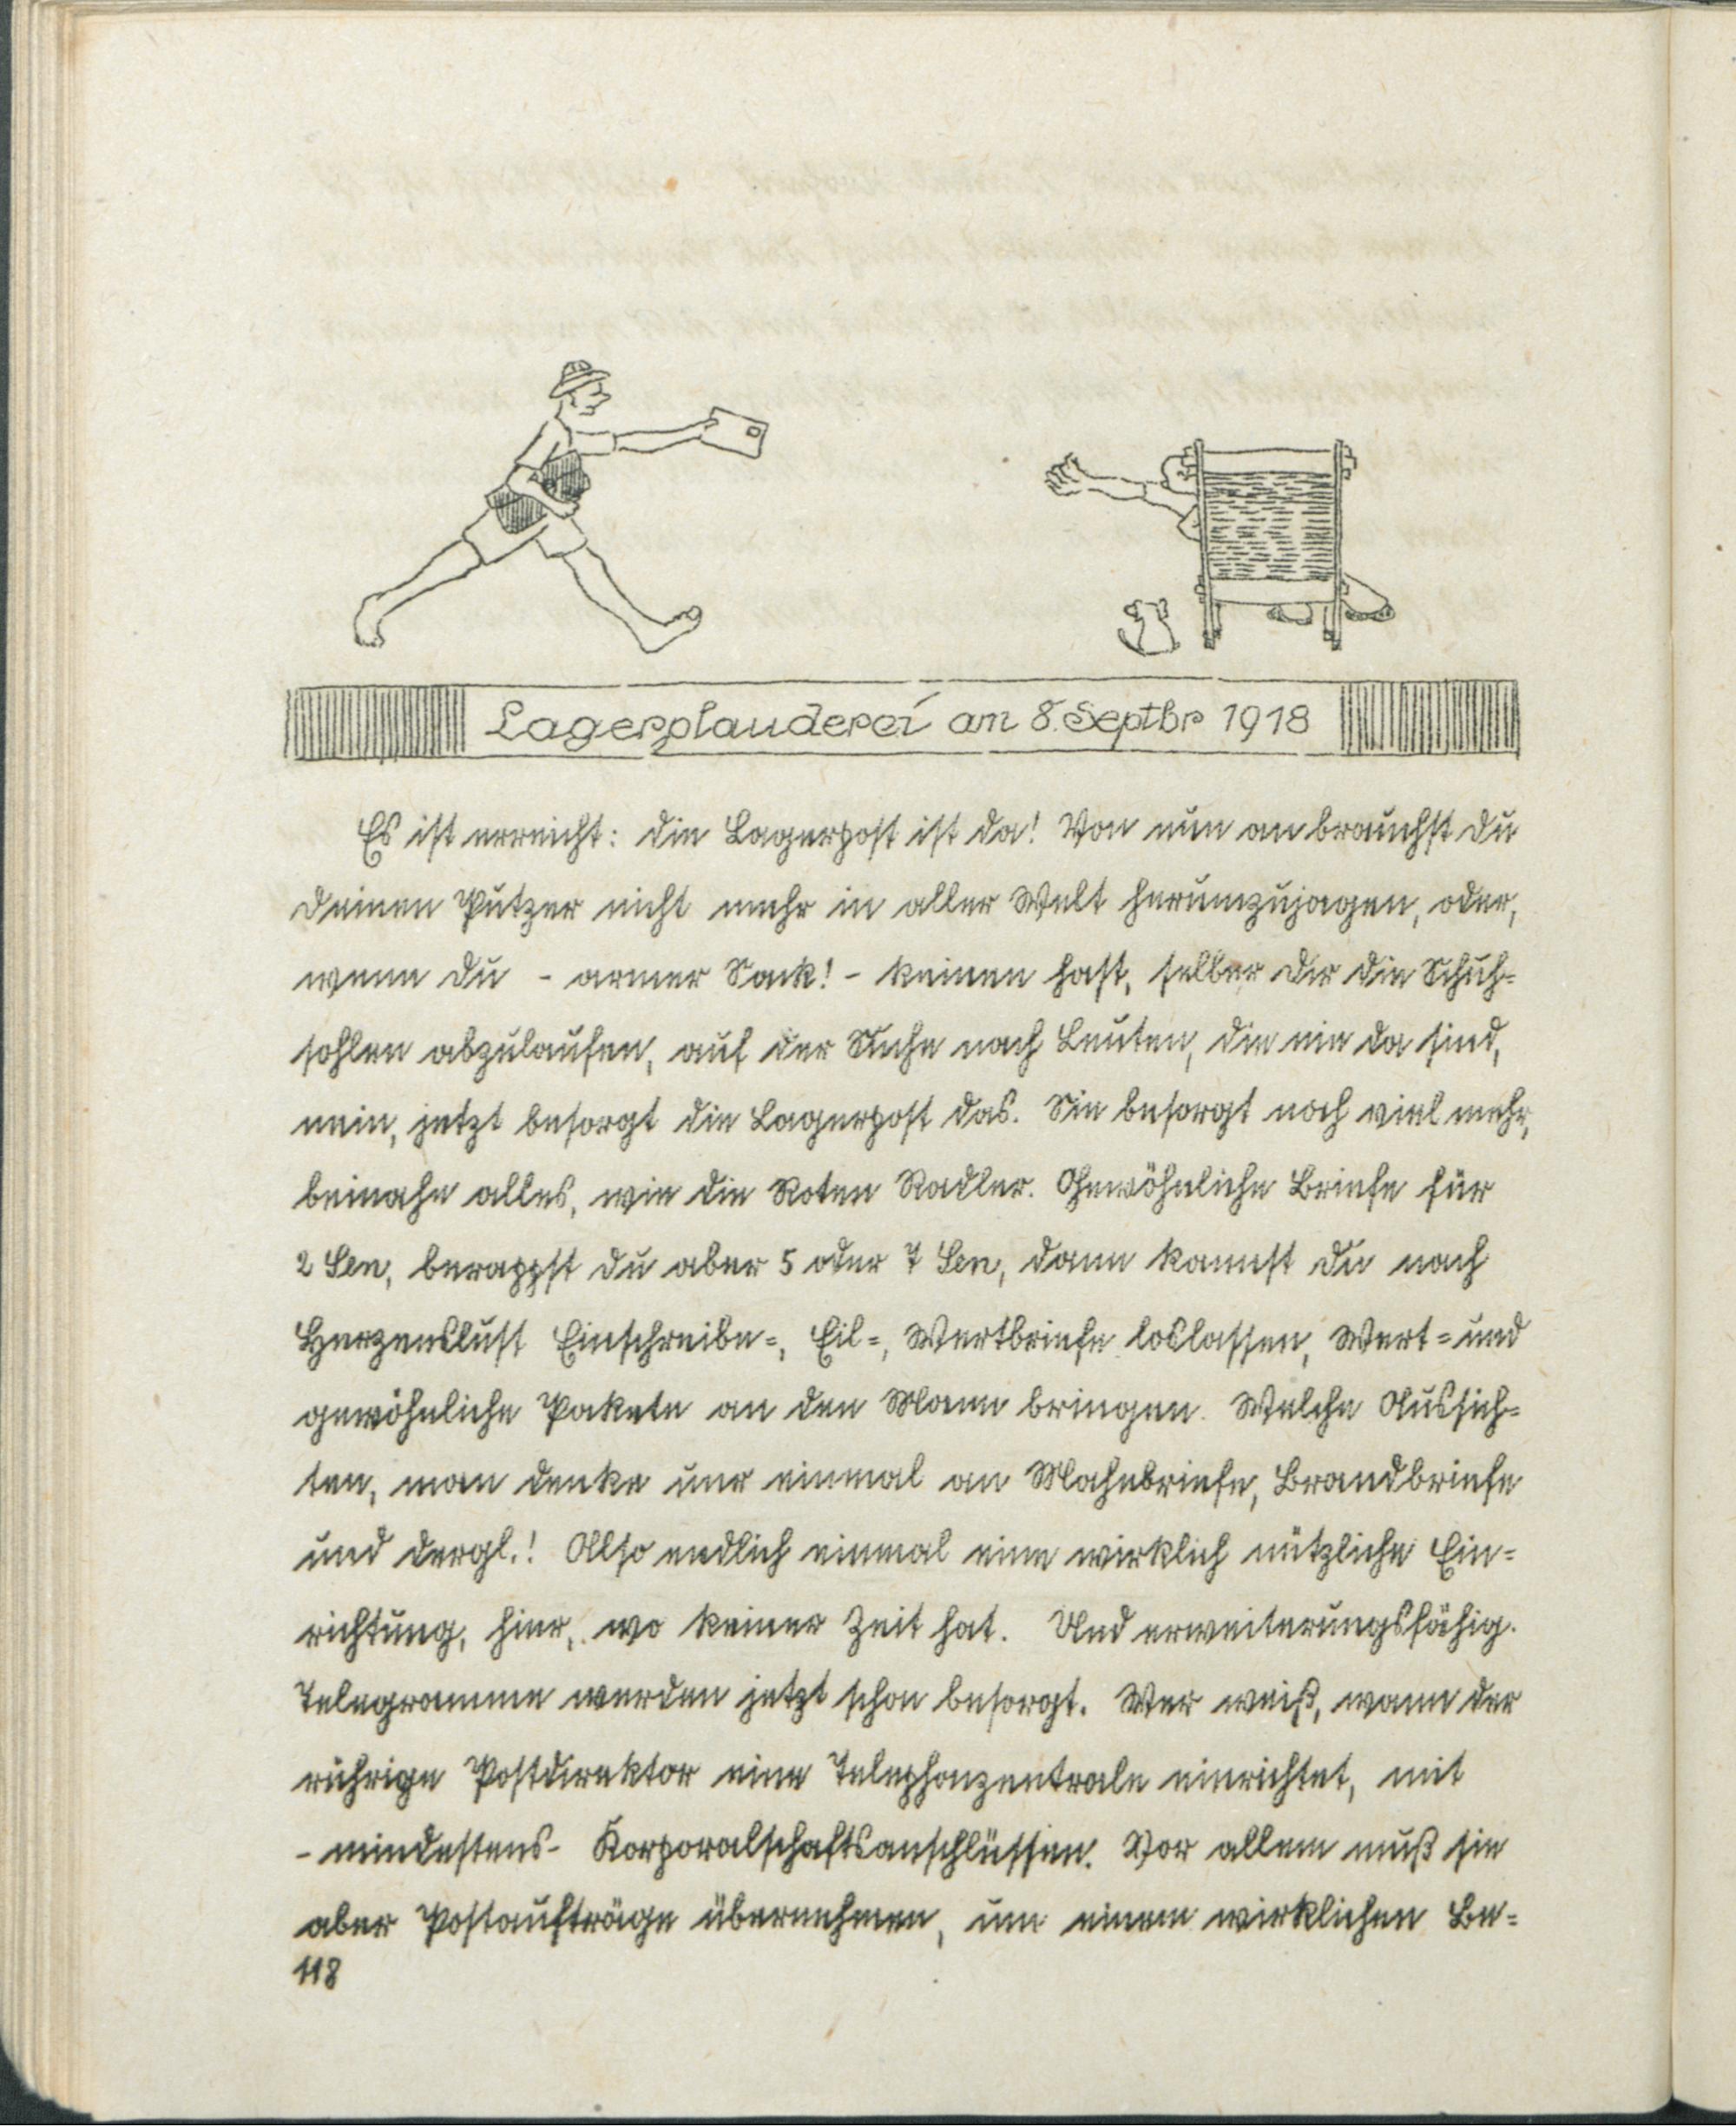 Lagerplauderei am 8. Septbr 1918
Es ist erreicht: die Lagerpost ist da! Von nun an brauchst du
deinen Putzer nicht mehr in aller Welt herumzujagen, oder,
wenn du - armer Sack! - keinen hast, selber dir die Schuh=
sohlen abzulaufen, auf der Suche nach Leuten, die nie da sind,
nein, jetzt besorgt die Lagerpost das. Sie besorgt noch viel mehr,
beinahe alles, wie die Roten Radler. Gewöhnliche Briefe für
2 Sen, berappst du aber 5 oder 7 Sen, dann kannst du nach
Herzenslust Einschreibe=, Eil=, Wertbriefe loslassen, Wert= und
gewöhnliche Pakete an den Mann bringen. Welche Aussich=
ten, man denke nur einmal an Mahnbriefe, Brandbriefe
und dergl.! Also endlich einmal eine wirklich nützliche Ein=
richtung, hier, wo keiner Zeit hat. Und erweiterungsfähig.
Telegramme werden jetzt schon besorgt. Wer weiß, wann der
rührige Postdirektor eine Telephonzentrale einrichtet, mit
- mindestens - Korporalschaftsanschlüssen. Vor allem muß sie
aber Postaufträge übernehmen, um einem wirklichen Be=
118